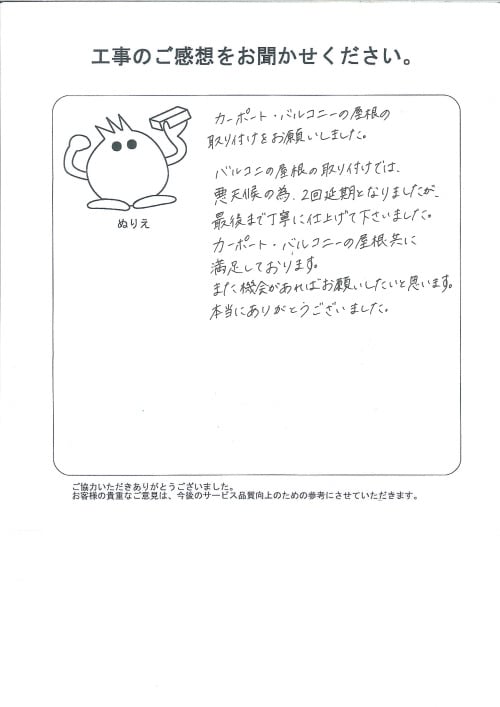 工事のご感想をお聞かせください。
カーポート・バルコニーの屋根の
取り付けをお願いしました。
バルコニの屋根の取り付けでは、
悪天候の為、2回延期となりましたが、
最後まで丁寧に仕上げて下さいました。
カーポート・バルコニーの屋根共に
満足しております。
また機会があればお願いしたいと思います。
本当にありがとうございました。
ぬりえ
ご協力いただきありがとうございました。
お客様の貴重なご意見は、今後のサービス品質向上のための参考にさせていただきます。